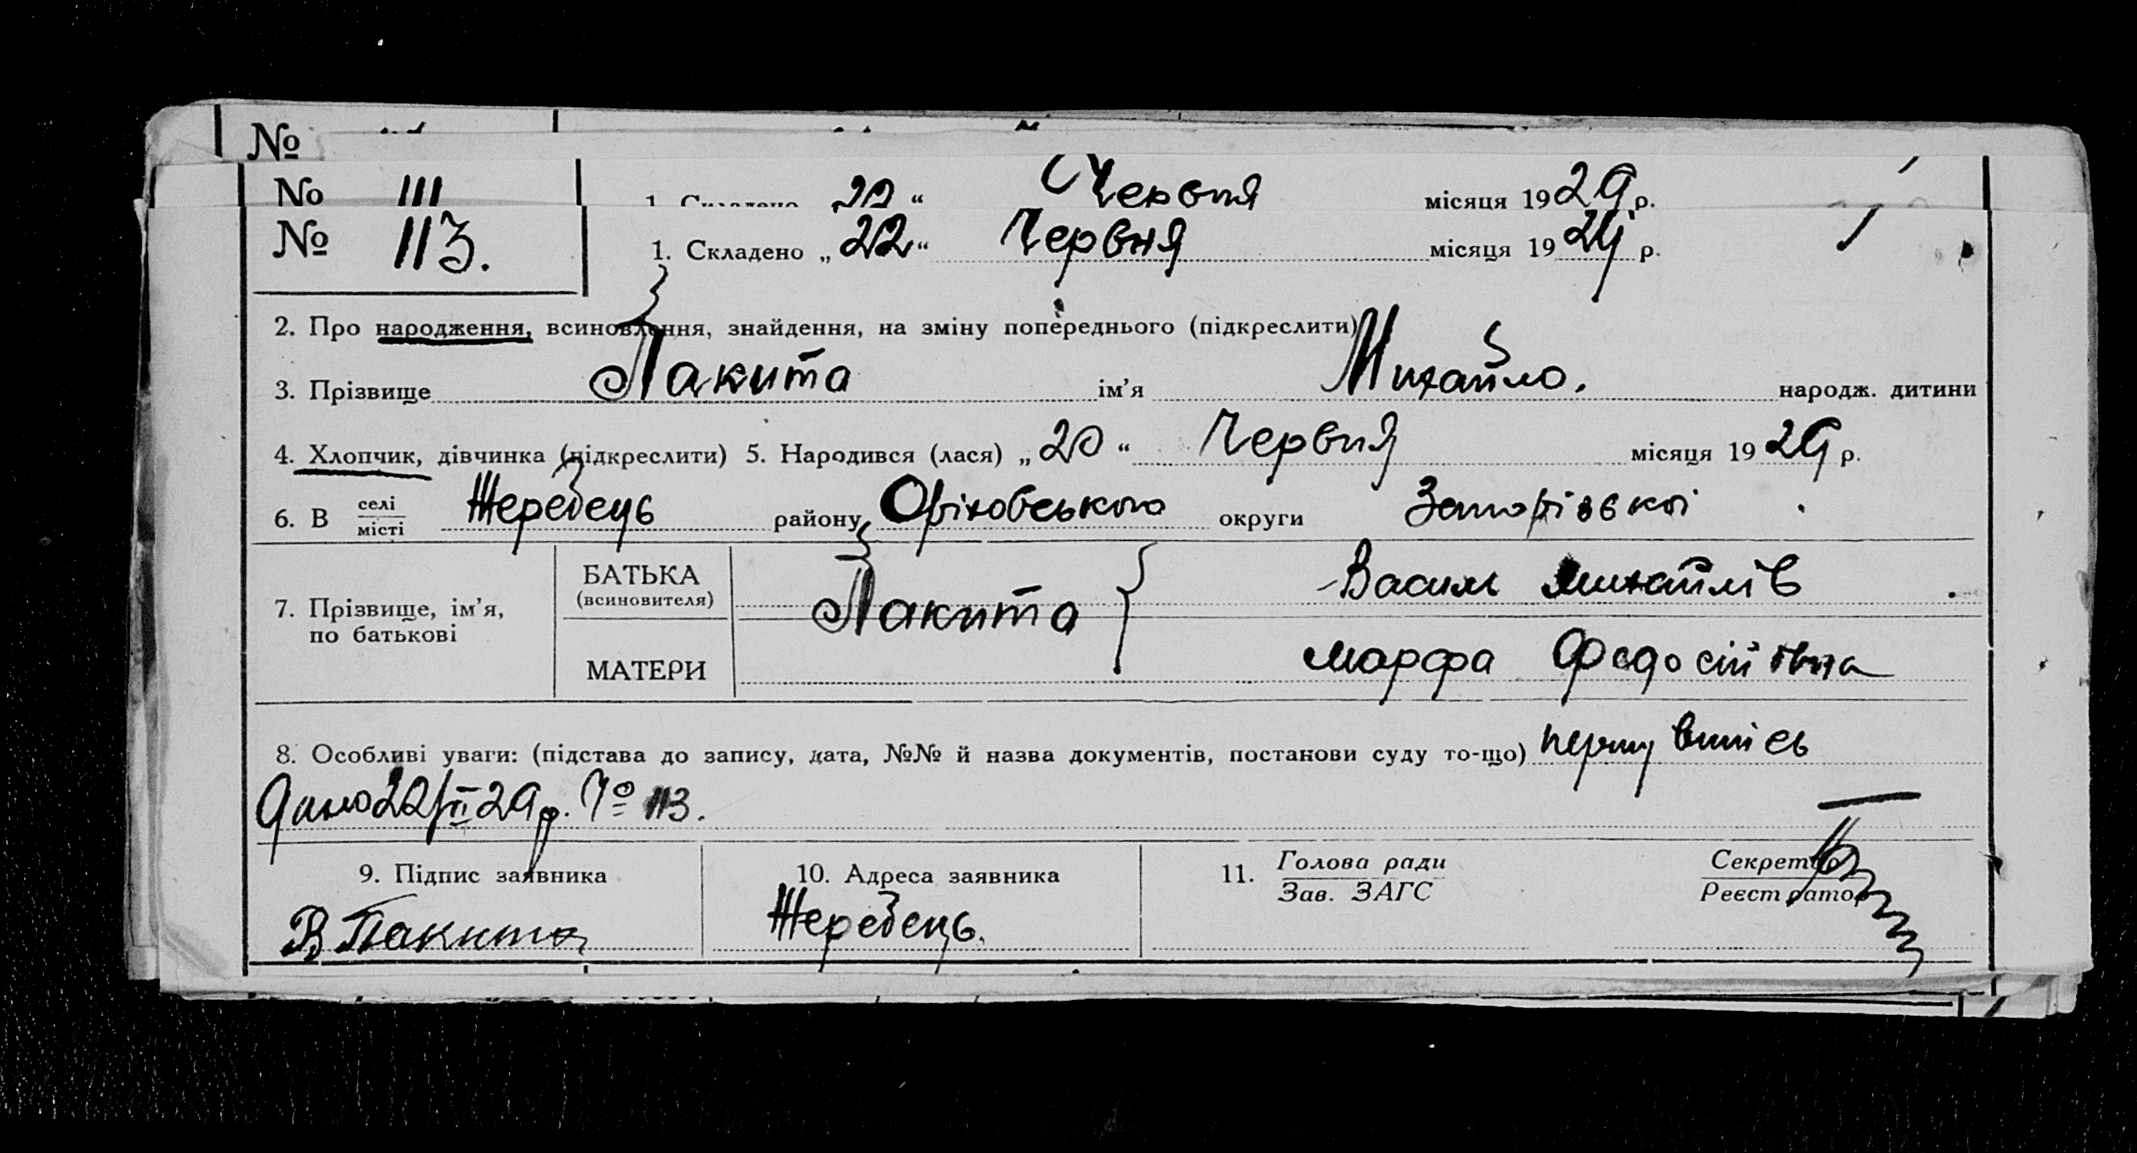 №
№ 111 1. Складено „22“ Червня місяця 1929 р.
№ 113. 1. Складено „22“ Червня місяця 1929 р.
2. Про народження, всиновлення, знайдення, на зміну попереднього (підкреслити)
3. Прізвище Пакита ім’я Михайло. народж. дитини
4. Хлопчик, дівчинка (підкреслити) 5. Народився (лася) „20“ Червня місяця 1929 р.
6. В селі/місті Жеребець району Оріховського округи Запорізскої
7. Прізвище, ім’я, по батькові
БАТЬКА (всиновителя) Пакита { Василь Михайлів
МАТЕРИ Марфа Федосіївна
8. Особливі уваги: (підстава до запису, дата, №№ й назва документів, постанови суду то-що) першу випісь
Дано 22/VI 29 р. № 113.
9. Підпис заявника 10. Адреса заявника 11. Голова ради Секретар
Зав. ЗАГС Реєстратор
В Пакита Жеребець.